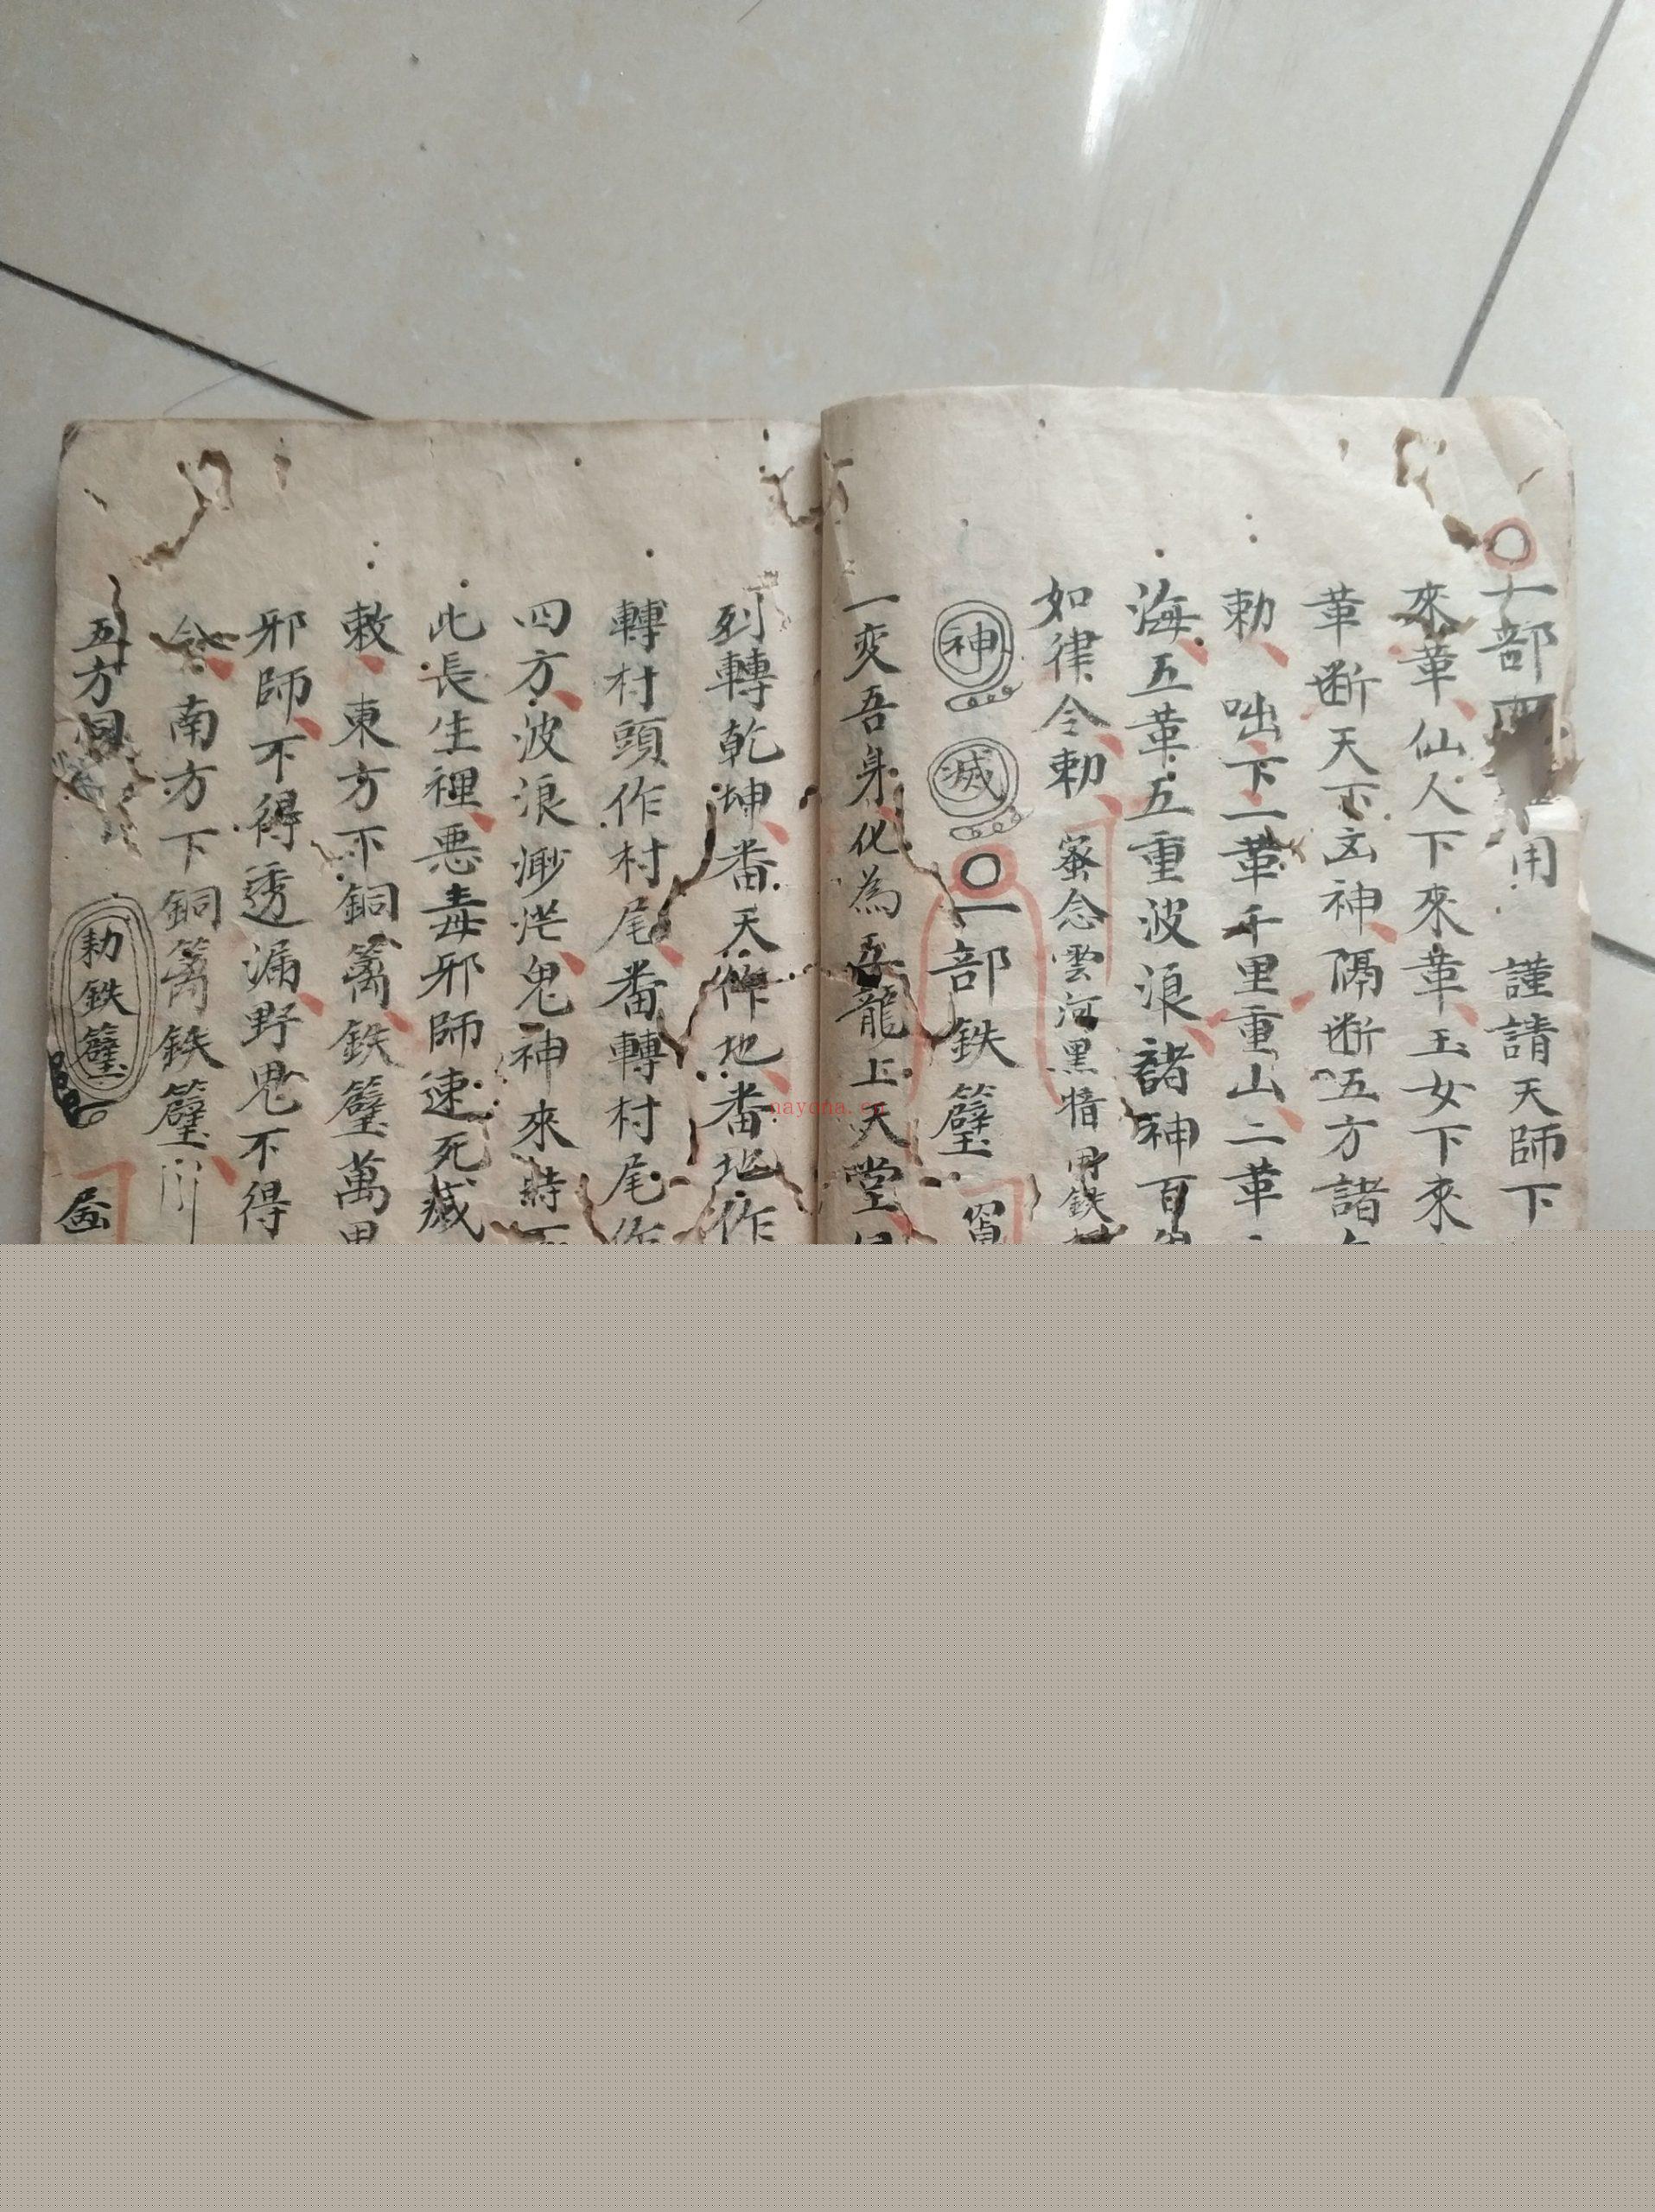 一部用　謹請天師下
來革仙人下來革玉女下來
革断天下玄神隔断五方諸
勅咄下一革千里重山二革
海五革五重波浪諸神百
如律令勅　蜜念雲河黑暗
神　滅　一部鉄壁
一变吾身化為五龍上天堂
列轉乾坤番天作地番地作
轉村頭作村尾番轉村尾作
四方波浪渺茫鬼神來時
此長生裡悪毒邪師速死滅
敕東方下銅籬鉄壁萬里
邪師不得透漏野鬼不得
令南方下銅籬鉄壁
五方同　勅鉄壁
nayona.cn